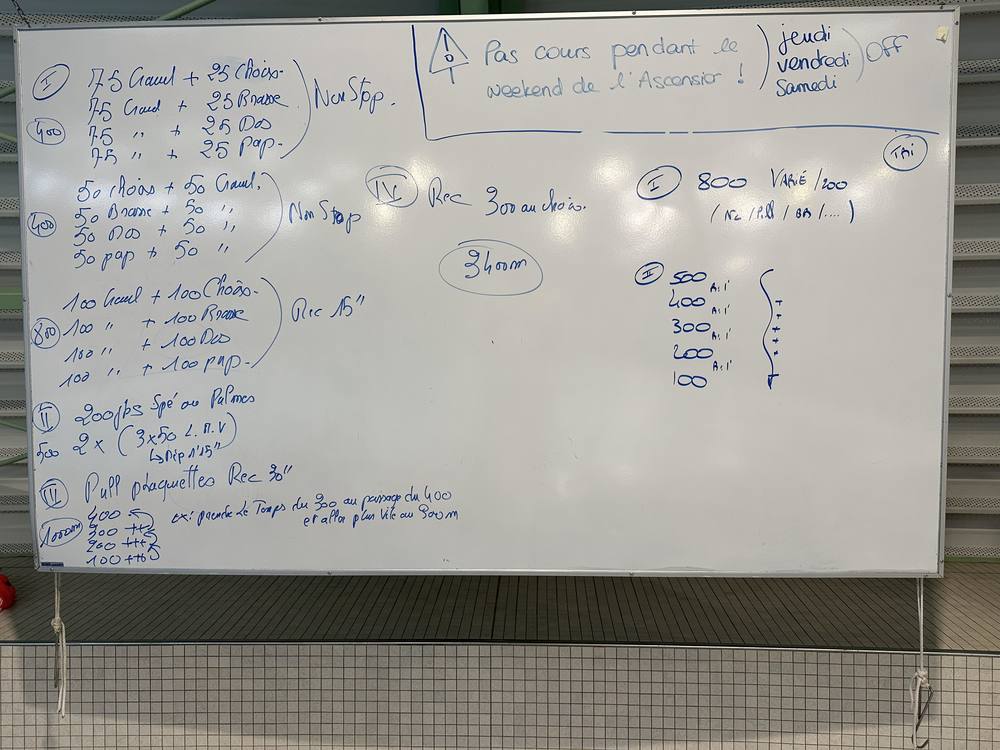 I 75 Crawl + 25 Choix.
75 Crawl + 25 Brasse
400 75 " + 25 Dos
75 " + 25 Pap.
Non Stop.
50 choix + 50 Crawl.
50 Brasse + 50 "
400 50 Dos + 50 "
50 pap + 50 "
Non Stop
100 Crawl + 100 Choix.
100 " + 100 Brasse
800 100 " + 100 Dos
100 " + 100 pap.
Rec 15"
II 200 jbs Spé ou Palmes
500 2x (3x50 L.M.V)
↳ Dép 1'15"
III Pull plaquettes Rec 30"
400
1000m 300 ++
200 +++
100 ++++
ex: prendre le Temps du 300 au passage du 400
et aller plus vite au 300m
IV Rec 300 au choix.
3400m
! Pas cours pendant le
weekend de l'Ascension !
jeudi
vendredi
samedi
OFF
TRI
I 800 VARIÉ /200
( NC / Pull / /.... )
II 500
R: 1'
400
R: 1'
300
R: 1'
200
R: 1'
100
+
+
+
+
+